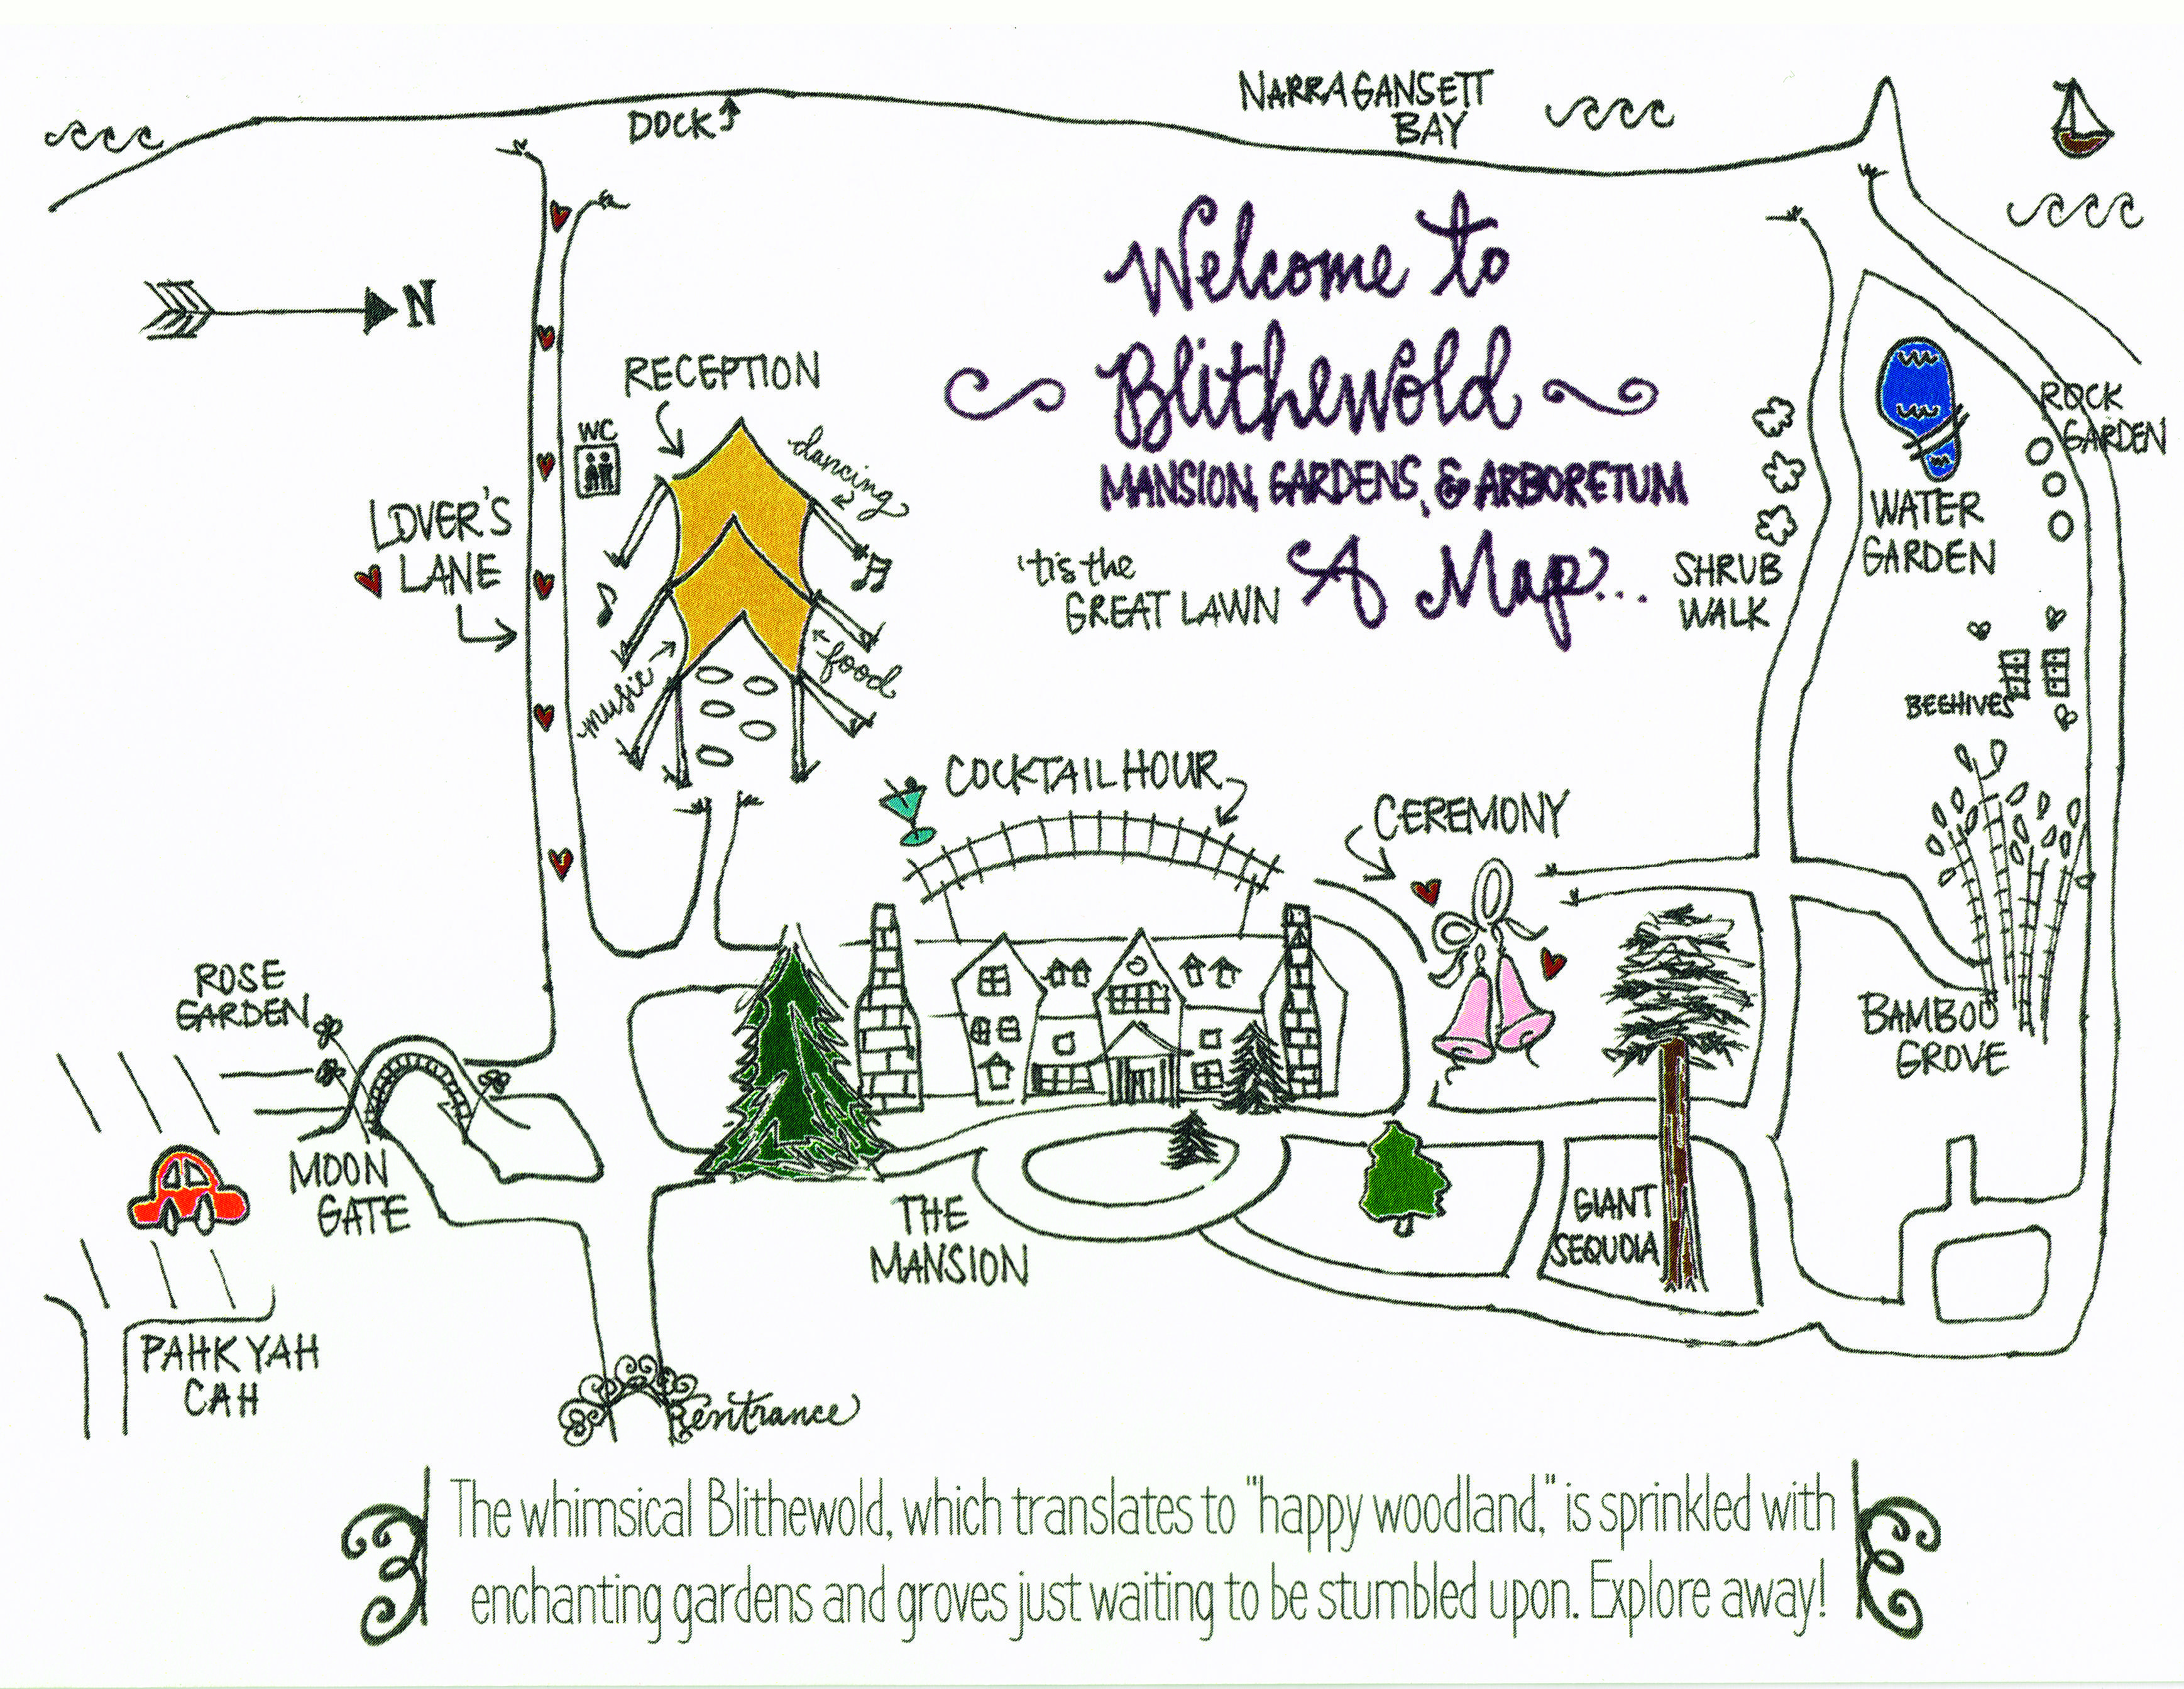 NARRAGANSETT
BAY
DOCK
N
Welcome to
Blithewold
MANSION, GARDENS, & ARBORETUM
A Map...
'tis the
GREAT LAWN
RECEPTION
WC
dancing
food
music
LOVER'S
LANE
ROCK
GARDEN
WATER
GARDEN
SHRUB
WALK
BEEHIVES
COCKTAIL HOUR
CEREMONY
ROSE
GARDEN
BAMBOO
GROVE
MOON
GATE
THE
MANSION
GIANT
SEQUOIA
PAHK YAH
CAH
entrance
The whimsical Blithewold, which translates to "happy woodland," is sprinkled with
enchanting gardens and groves just waiting to be stumbled upon. Explore away!